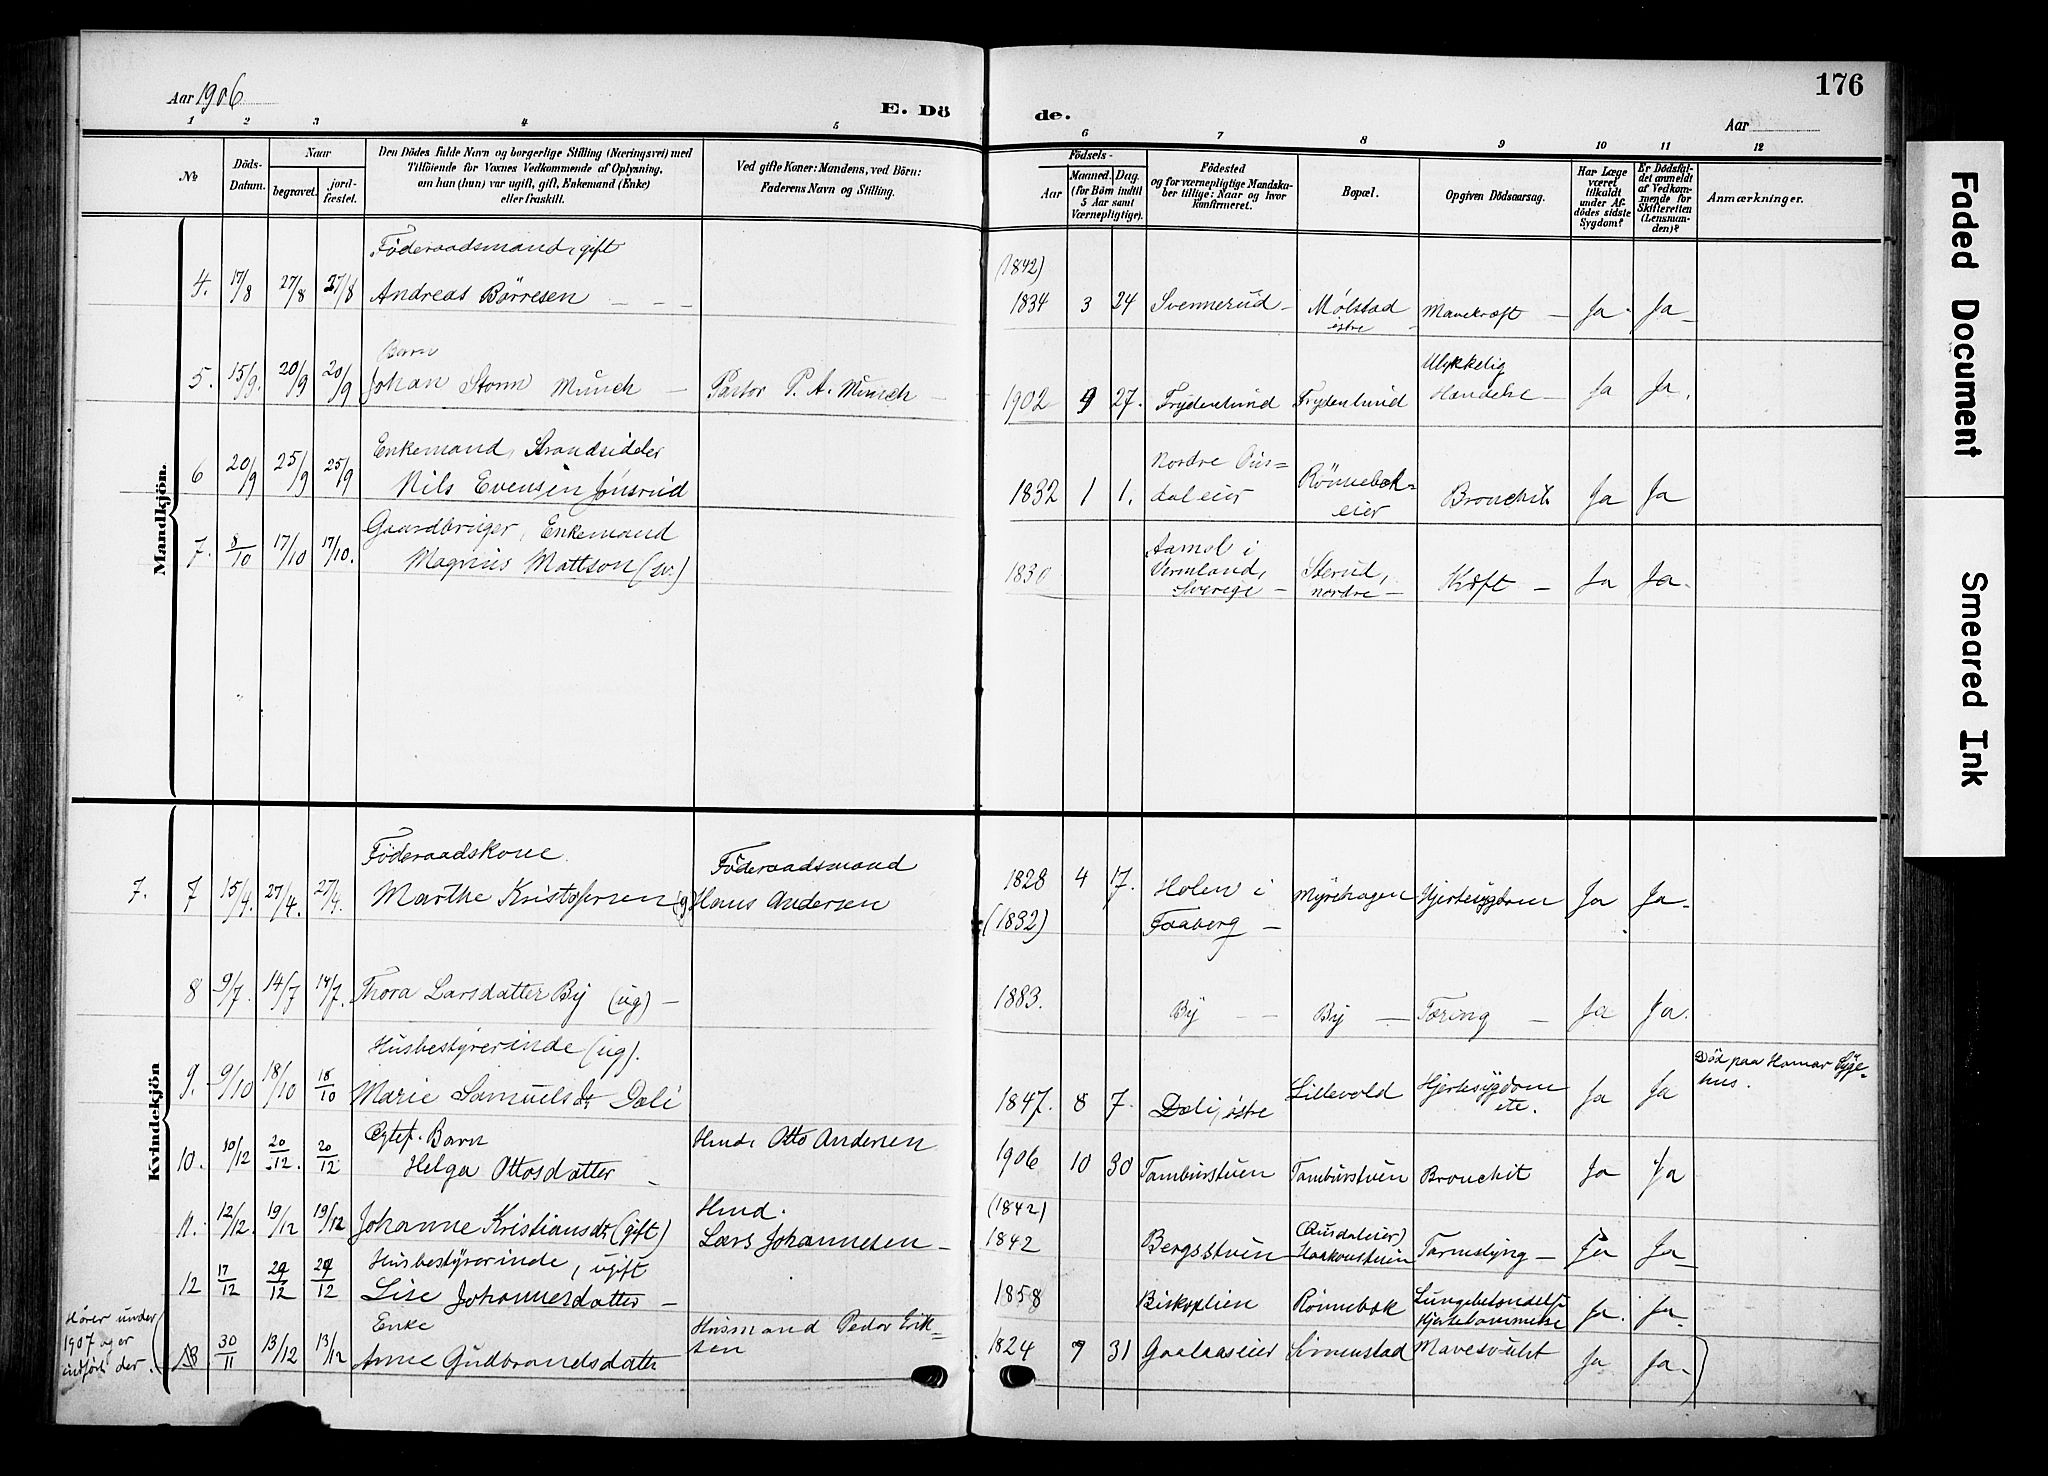 176
Aar 1906
E. Döde.
Aar
1 2 3 4 5 6 7 8 9 10 11 12
No
Döds-Datum.
Naar
begravet.
jord-fæstet.
Den Dödes fulde Navn og borgerlige Stilling (Næringsvei) med
Tilföiende for Voxnes Vedkommende af Oplysning,
om han (hun) var ugift, gift, Enkemand (Enke)
eller fraskilt.
Ved gifte Koner: Mandens, ved Börn:
Faderens Navn og Stilling.
Födsels-
Aar
Maaned. Dag.
(for Börn indtil
5 Aar samt
Værnepligtige).
Födested
og for værnepligtige Mandska-
ber tillige: Naar og hvor
konfirmeret.
Bopæl.
Opgiven Dödsaarsag.
Har Læge
været
tilkaldt
under Af-
dödes sidste
Sygdom?
Er Dödsfal-
det anmeldt
af Vedkom-
mende for
Skifteretten
(Lensman-
den)?
Anmærkninger.
Mandkjön.
Föderaadsmand, gift
4. 17/8 27/8 27/8 Andreas Börresen — — — (1842) 1834 3 24 Svennerud — Mølstad østre — Mavekræft — Ja - Ja —
Barn
5. 15/9. 20/9 20/9 Johan Storm Munch — Pastor P. A. Munch — 1902 9 27. Frydenlund Frydenlund Ulykkelig Hændelse — Ja Ja.
Enkemand, Strandsidder
6 20/9 25/9 25/9 Nils Evensen Jonsrud 1832 1 1. Nordre daleier Rönnebæk= eier Bronchit Ja Ja
Gaardbruger, Enkemand
7. 8/10 17/10 17/10. Magnus Mattson (sv.) 1830 i Vermland, Sverige — Sterud, nordre — Kræft — Ja Ja —
Kvindekjön
Föderaadskone. Föderaadsmand
7. 7 15/4. 27/4. 27/4. Marthe Kristofersen (g) Hans Andersen 1828 (1832) 4 17. Holen i Faaberg — Myrehagen Hjertesygdom Ja Ja —
8 9/7. 14/7 14/7. Thora Larsdatter By (ug) — 1883. By — — By — Tæring — Ja Ja.
Husbestyrerinde (ug).
9. 9/10 18/10 18/10 Marie Samuelsdt Dæli 1847. 8 7. Dæli, østre Lillevold Hjertesygdom etc. Ja Ja Död paa Hamar Syge-hus.
Ægtef. Barn
10. 10/12 20/12. 20/12 Helga Ottosdatter — Hmd. Otto Andersen 1906 10 30 Tamburstuen Tamburstuen Bronchit Ja Ja
11. 12/12. 19/12 19/12 Johanne Kristiansdt (gift) Hmd. Lars Johannesen — (1842) 1842 Bergsstuen Haakonstuen Tarmslyng — Ja Ja —
Husbestyrerinde, ugift
12 17/12 29/12 29/12 Lise Johannesdatter — 1858 Biskoplien Rönnebæk Lungebetændelse Ja. Ja —
Enke
30/11 13/12 13/12 Anne Gudbrandsdatter Husmand Peder Erik=sen 1824 7 31 Gaalaaseier Simenstad Mavesvulst Ja Ja —
Hører under
1907 og er
indført der.
Faded Document
Smeared Ink